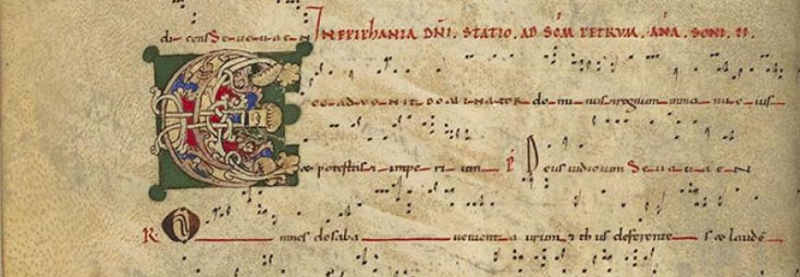 di cens Seuouaen IN EPIPHANIA DÑI. STATIO. AD SC̄M PETRVM. AÑA. SONI. II.
E CCE ADVENIT DOMINATOR do mi nus & regnum in ma nu e ius
& potestas & impe ri um P Deus iudicium Seuouaen
R O mnes de saba venient a urum & thus deferente s & laudē